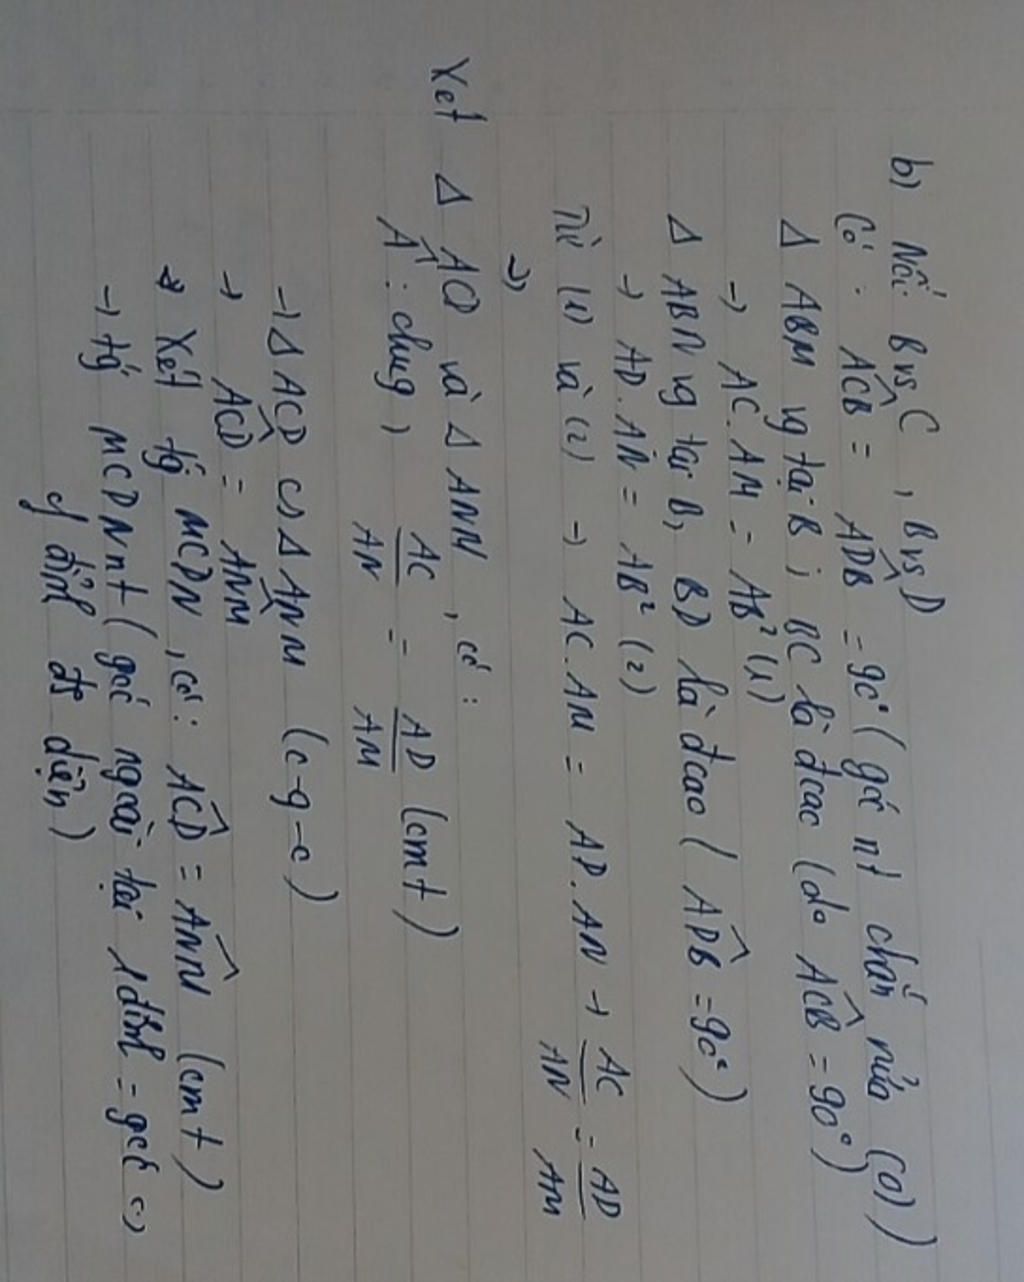 b) Nối B vs C , B vs D
Có : ACB^ = ADB^ = 90° ( góc nt chắn nửa (O) )
Δ ABM vg tại B ; BC là đcao (do ACB^ = 90° )
→ AC.AM = AB² (1)
Δ ABN vg tại B, BD là đcao ( ADB^ = 90° )
→ AD.AN = AB² (2)
Từ (1) và (2) → AC.AM = AD.AN → AC/AN = AD/AM
Xét Δ ACD và Δ ANM , có :
A^ : chung ; AC/AN = AD/AM (cmt)
→ Δ ACD ∽ Δ ANM (c-g-c)
→ ACD^ = ANM^
Xét tg MCDN , có : ACD^ = ANM^ (cmt)
→ tg MCDN nt ( góc ngoài tại 1 đỉnh = góc
đỉnh đối diện )